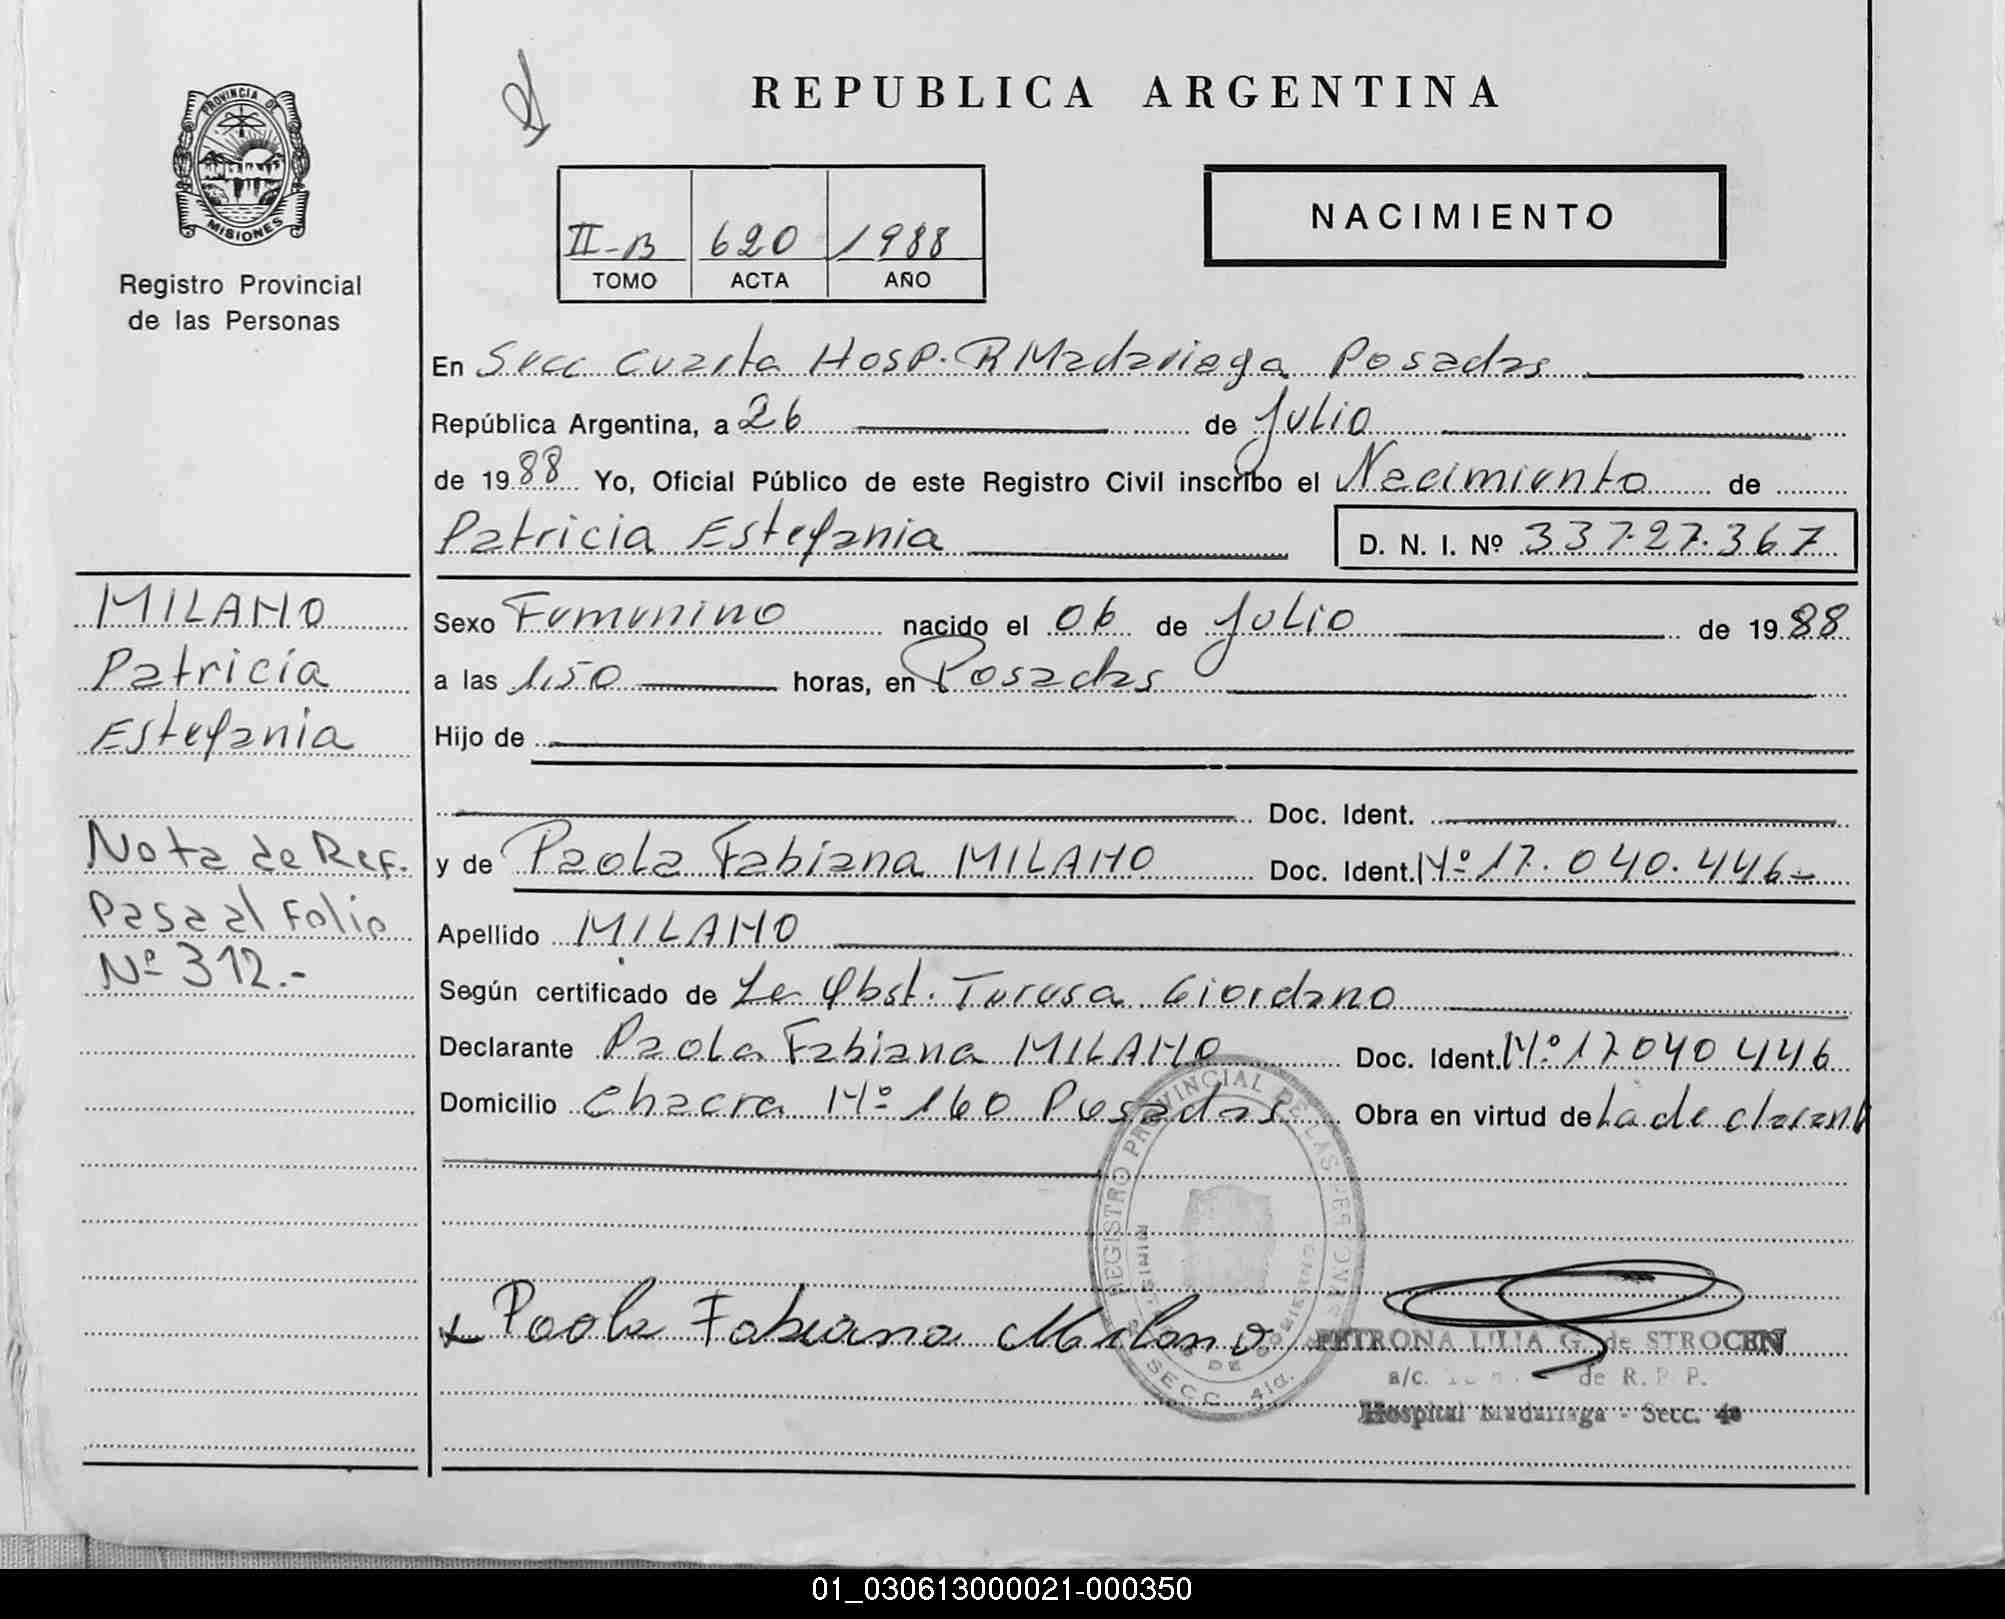 PROVINCIA DE
MISIONES
Registro Provincial
de las Personas
REPUBLICA ARGENTINA
NACIMIENTO
II-B 620 1988
TOMO ACTA AÑO
En Secc Cuarta Hosp. R Madariaga Posadas
República Argentina, a 26 de Julio
de 1988 Yo, Oficial Público de este Registro Civil inscribo el Nacimiento de
Patricia Estefania D. N. I. Nº 33.727.367
MILANO
Patricia
Estefania
Nota de Ref.
Pasa al Folio
Nº 312.-
Sexo Femenino nacido el 06 de Julio de 1988
a las 1,50 horas, en Posadas
Hijo de
Doc. Ident.
y de Paola Fabiana MILANO Doc. Ident. Nº 17.040.446-
Apellido MILANO
Según certificado de La Obst. Teresa Giordano
Declarante Paola Fabiana MILANO Doc. Ident. Nº 17040446
Domicilio Chacra Nº 160 Posadas Obra en virtud de La declarant
REGISTRO PROVINCIAL DE LAS PERSONAS
MINISTERIO DE GOBIERNO
SECC. 4ta.
x Paola Fabiana Milano
PETRONA LILIA G. de STROCEN
a/c. de R. P. P.
Hospital Madariaga - Secc. 4a
01_030613000021-000350